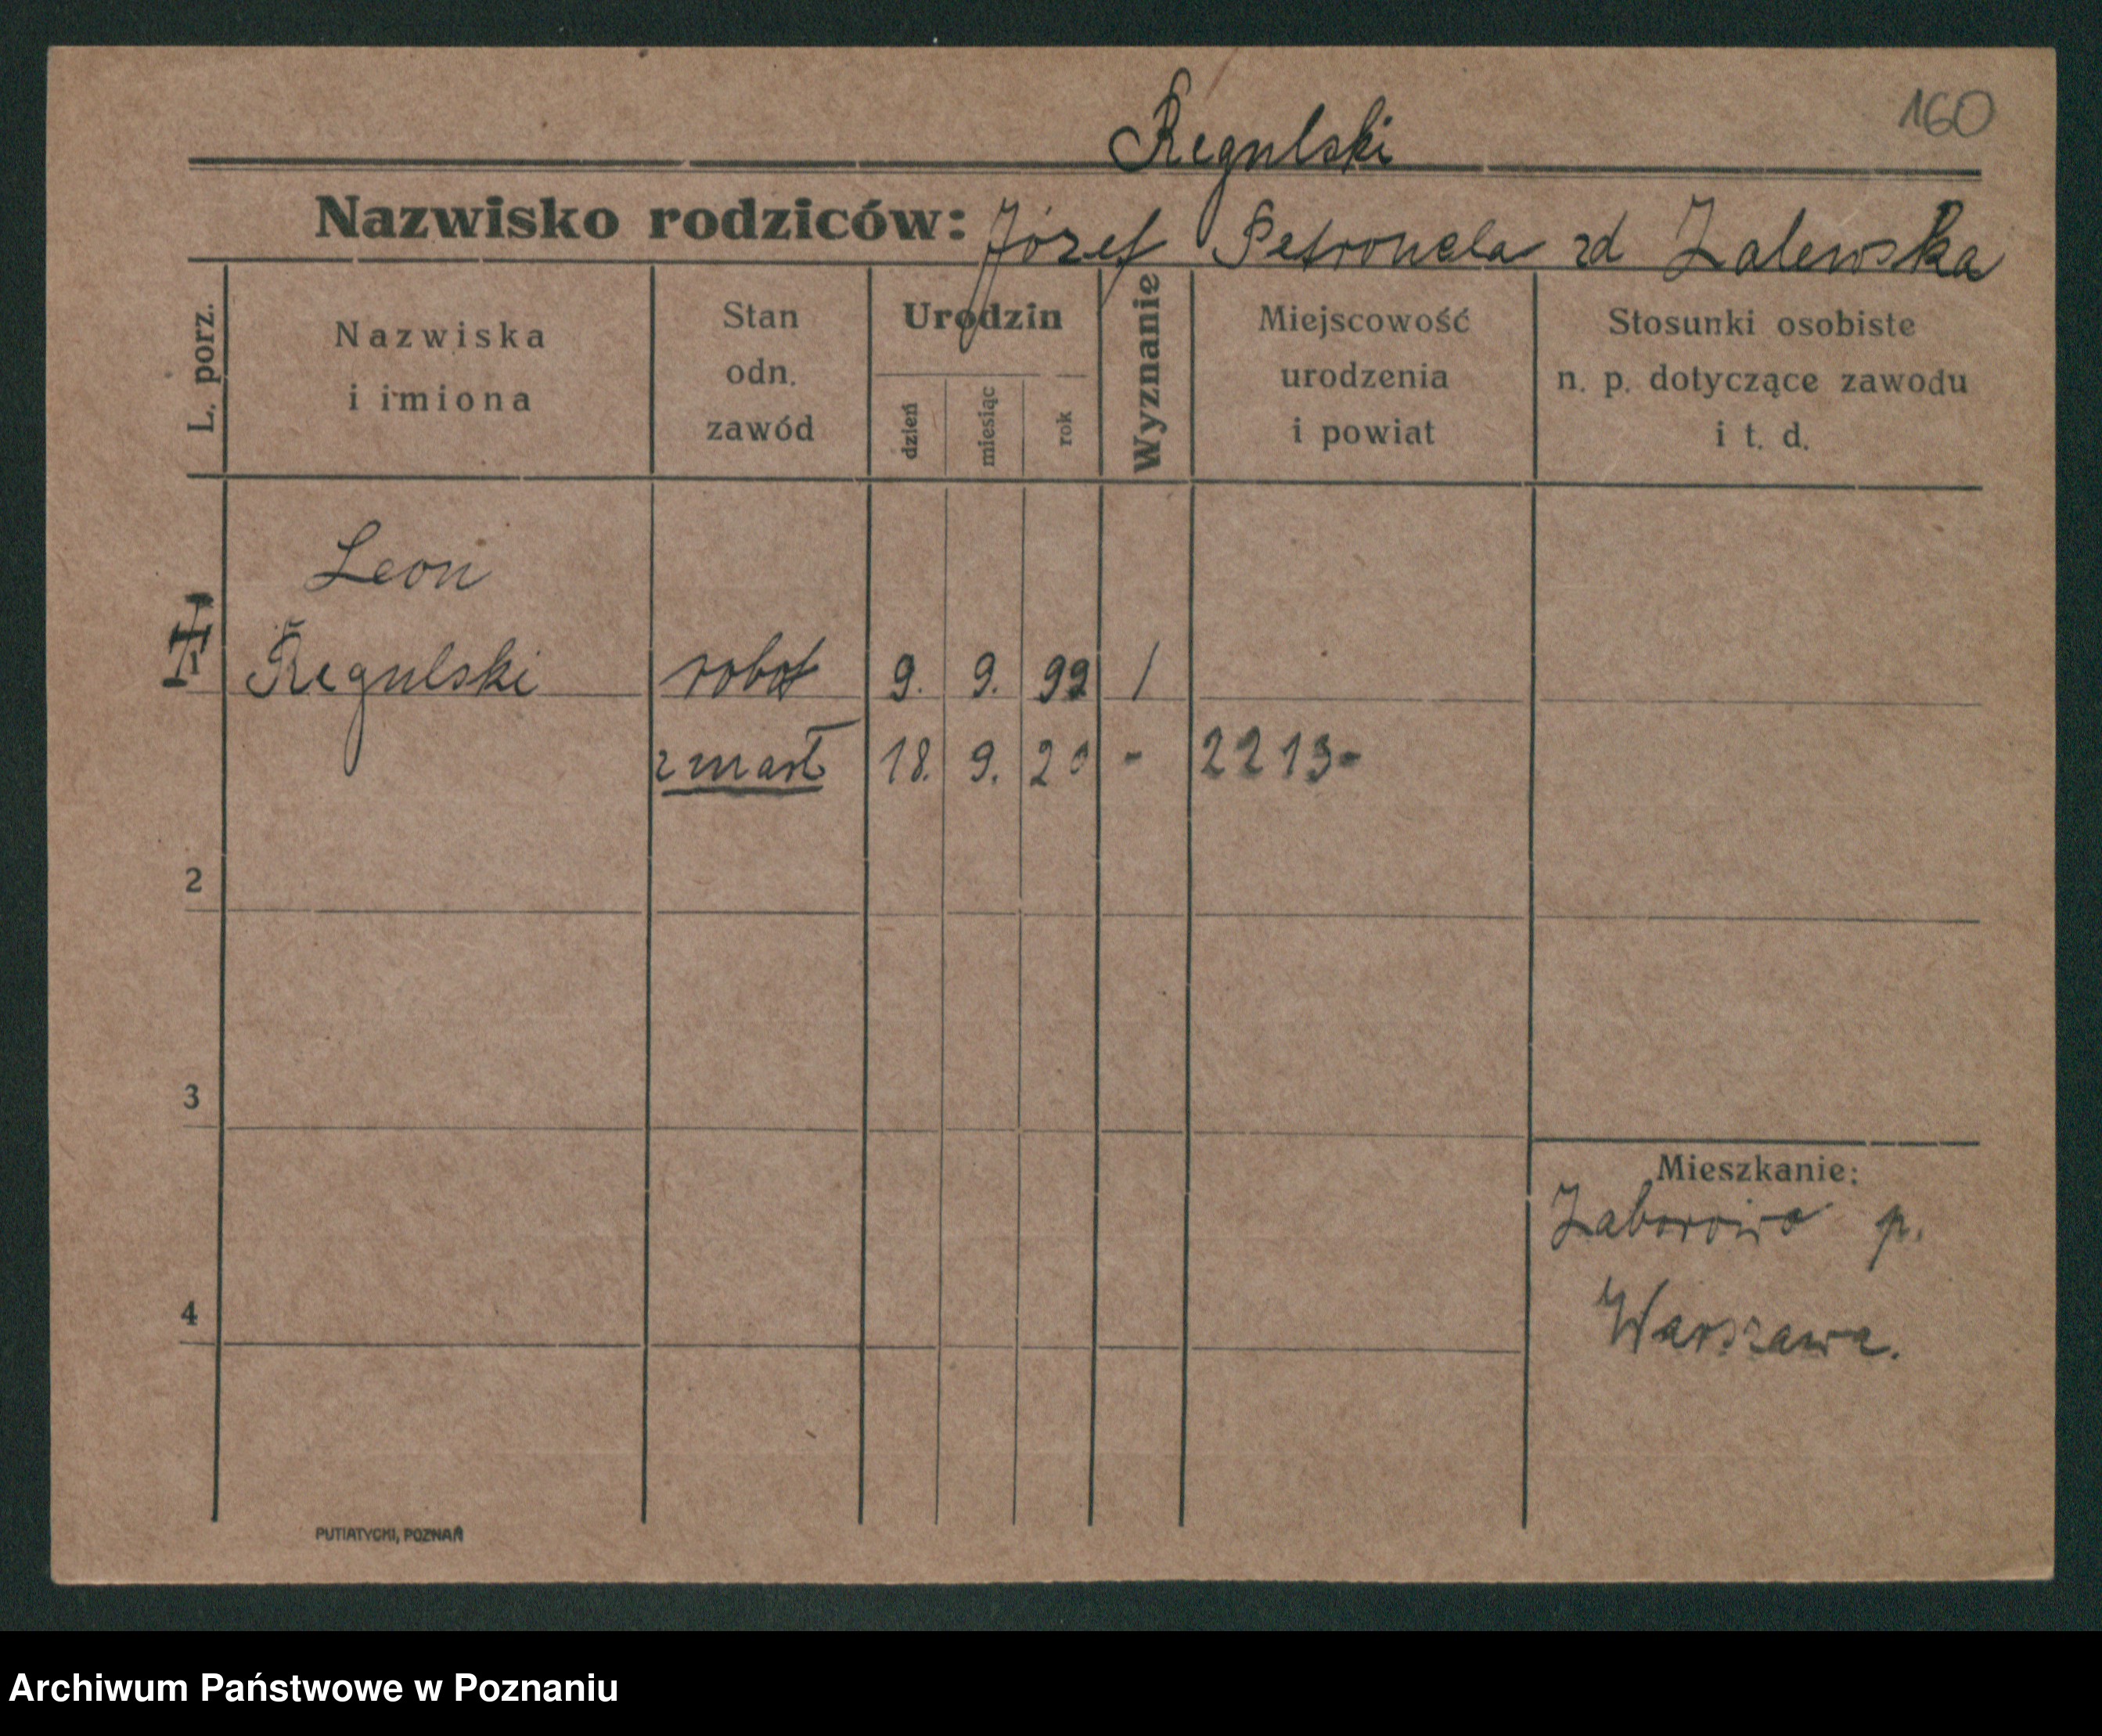 160
Regulski
Nazwisko rodziców: Józef Petronela zd Zalewska
L. porz.
Nazwiska
i imiona
Stan
odn.
zawód
Urodzin
dzień
miesiąc
rok
Wyznanie
Miejscowość
urodzenia
i powiat
Stosunki osobiste
n. p. dotyczące zawodu
i t. d.
Leon
1 Regulski robot 9. 9. 99 /
zmarł 18. 9. 20 - 2213-
2
3
4
Mieszkanie:
Zaborowo p.
Warszawa.
PUTIATYCKI, POZNAŃ
Archiwum Państwowe w Poznaniu